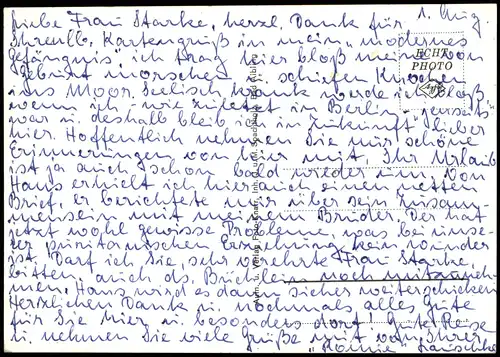 Liebe Frau Starke, herzl. Dank für
1. Aug.
Ihren lb. Kartengruß in mein „modernes
Gefängnis" ich trag hier bloß meine von
Geburt morschen u. schiefen Knochen
ins Moor. Seelisch krank werde ich bloß
wenn ich - wie zuletzt in Berlin „jenseits"
war u. deshalb bleib ich in Zukunft lieber
hier. Hoffentlich nehmen Sie nur schöne
Erinnerungen von hier mit, Ihr Urlaub
ist ja auch schon bald wieder um. Von
Hans erhielt ich hier auch einen netten
Brief, er berichtete mir über sein Zusam-
mensein mit meinem Bruder. Der hat
jetzt wohl gewisse Probleme, was bei unse-
rer puritanischen Erziehung kein Wunder
ist. Darf ich Sie, sehr verehrte Frau Starke,
bitten, auch ds. Büchlein noch mitzuneh-
men. Hans wird es dann sicher weiterschicken
Herzlichen Dank u. nochmals alles Gute
für Sie hier u. besonders dort! Gute Reise
u. nehmen Sie viele Grüße mit von Ihrer
ECHT
PHOTO